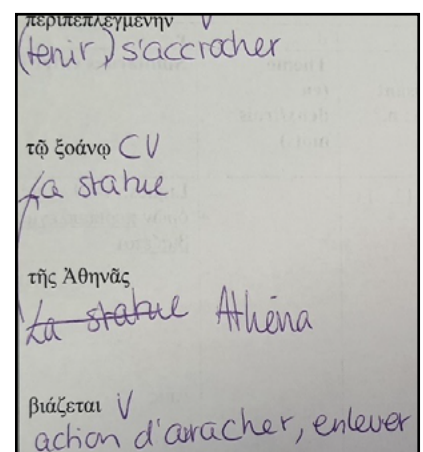 περιπεπλεγμένην V
(tenir) s'accrocher
τῷ ξοάνῳ CV
La statue
τῆς Ἀθηνᾶς
La statue Athéna
βιάζεται V
action d'arracher, enlever